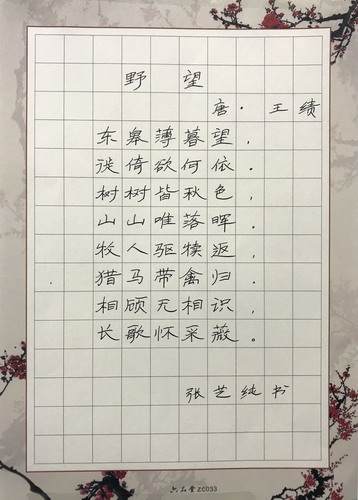 野望
唐·王绩
东皋薄暮望,
徙倚欲何依.
树树皆秋色,
山山唯落晖.
牧人驱犊返,
猎马带禽归.
相顾无相识,
长歌怀采薇。
张艺纯书
六品堂 ZC033